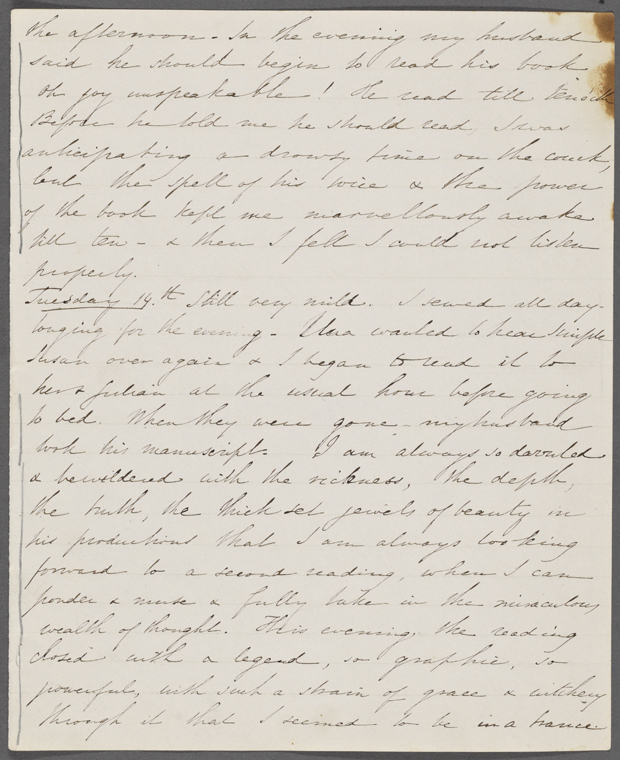 the afternoon - In the evening my husband
said he should begin to read his book
oh joy unspeakable! He read till tenish
Before he told me he should read, I was
anticipating a drowsy time on the couch,
but the spell of his voice & the power
of the book kept me marvellously awake
till ten - & then I felt I could not listen
properly.
Tuesday 14.th Still very mild. I sewed all day -
longing for the evening - Una wanted to hear Simple
Susan over again & I began to read it to
her & Julian at the usual hour before going
to bed. When they were gone - my husband
took his manuscript. I am always so dazzled
& bewildered with the richness, the depth,
the truth, the thick set jewels of beauty in
his productions that I am always looking
forward to a second reading, when I can
ponder & muse & fully take in the miraculous
wealth of thought. This evening the reading
closed with a legend, so graphic, so
powerful, with such a strain of grace & witchery
through it that I seemed to be in a trance